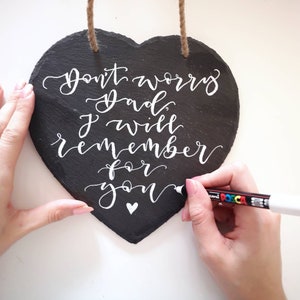 Don't worry
Dad,
I will
remember
for
you
POSCA